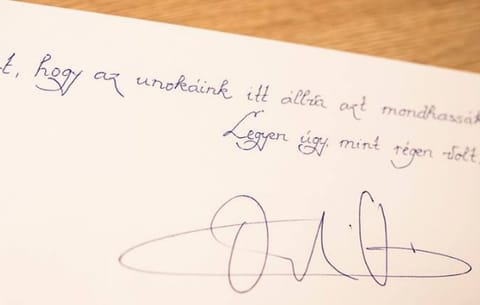 t, hogy az unokáink itt állva azt mondhassák
Legyen úgy, mint régen volt.